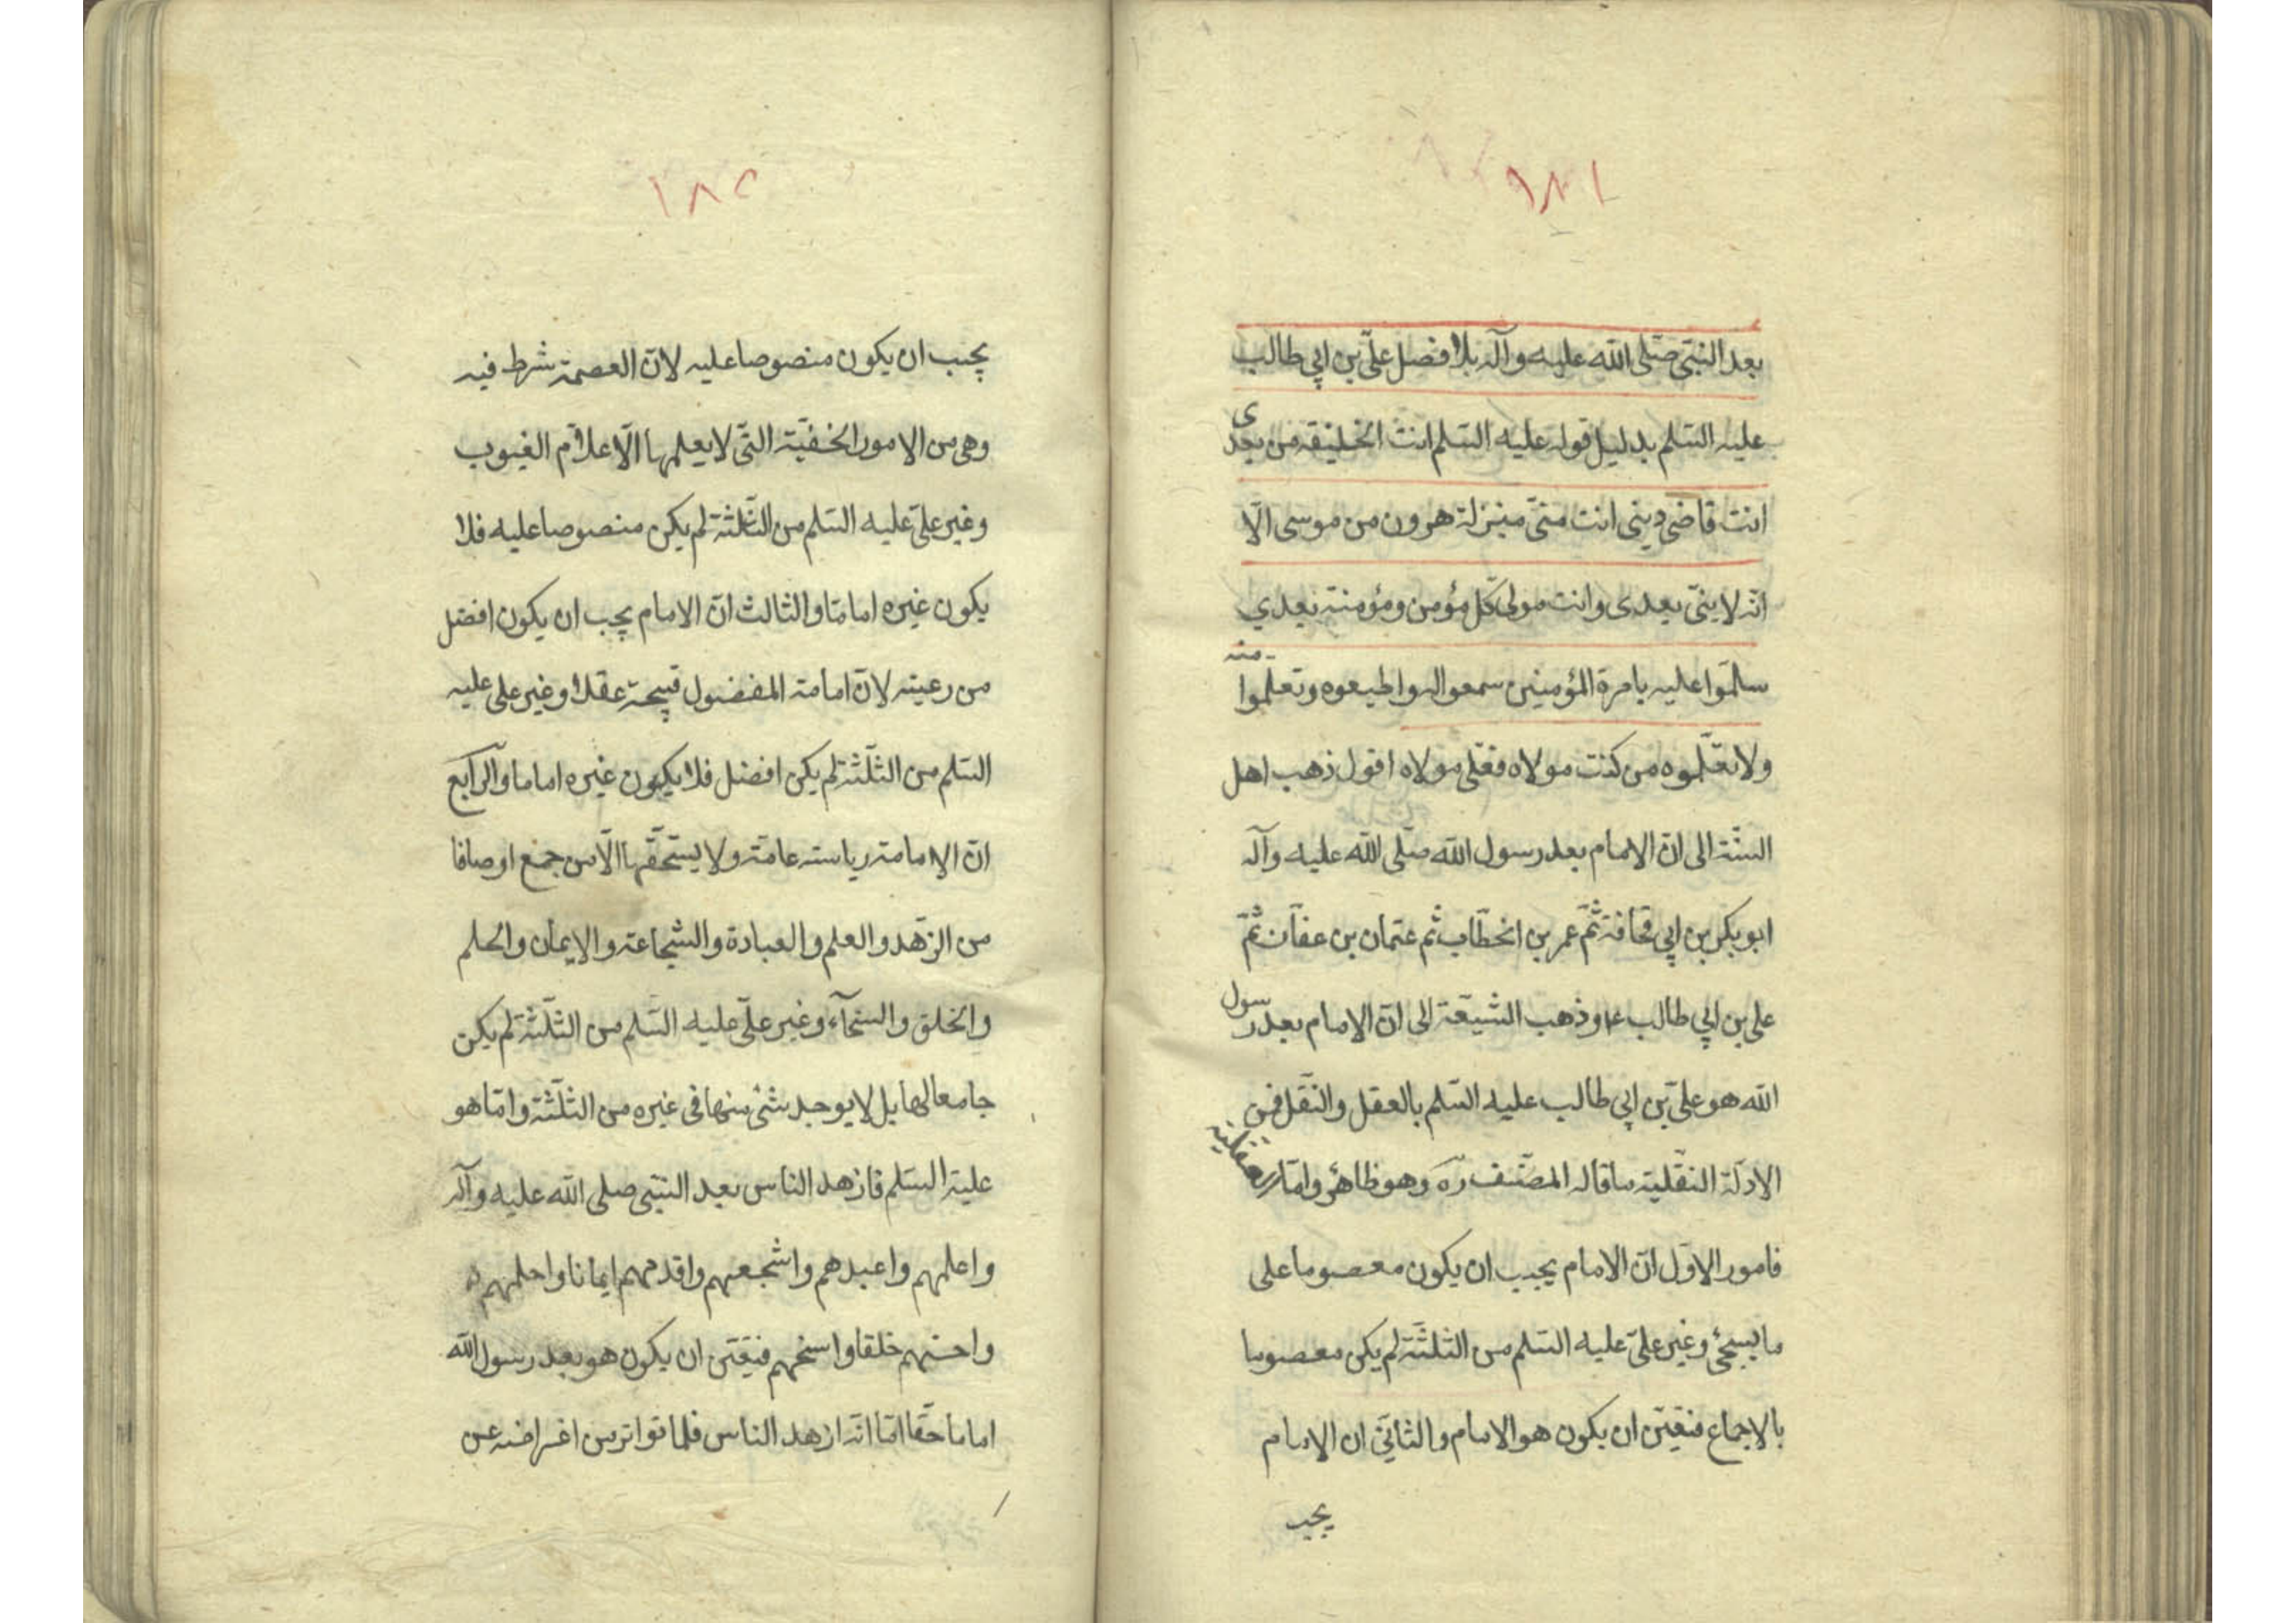 ١٨١
بعد النبى صلى الله عليه وآله بلا فصل علىّ بن ابى طالب
عليه السلم بدليل قوله عليه السلم انت الخليفة من بعدى
انت قاضى دينى انت منى منزلة هرون من موسى الّا
انّه لا نبىّ بعدى وانت مولى كلّ مؤمن ومؤمنة بعدي
سلّموا عليه بامرة المؤمنين سمعوا له واطيعوه وتعلموا منه
ولا تعلّموه من كنت مولاه فعلى مولاه اقول ذهب اهل
السنّة الى انّ الامام بعد رسول الله صلّى الله عليه وآله
ابو بكر بن ابى قحافة ثمّ عمر بن الخطّاب ثم عثمان بن عفّان ثمّ
على بن ابي طالب ع وذهب الشيعة الى انّ الامام بعد رسول
الله هو علىّ بن ابى طالب عليه السّلم بالعقل والنّقل فمن
الادلّة النقلية ما قاله المصنّف ره وهو ظاهر وامّا
فامور الاوّل انّ الامام يجب ان يكون معصوما على
ما يسجئ وغير علىّ عليه السلم من الثلثة لم يكن معصوما
بالاجماع فتعيّن ان يكون هو الامام والثانى ان الامام
يجب
١٨٢
يجب ان يكون منصوصا عليه لانّ العصمة شرط فيه
وهى من الامور الخفيّة التّى لا يعلمها الّا علاّم الغيوب
وغير علىّ عليه السلم من الثلثة لم يكن منصوصا عليه فلا
يكون غيره اماما والثالث انّ الامام يجب ان يكون افضل
من رعيته لانّ امامة المفضول قبيحة عقلا وغير على عليه
السلم من الثلّثة لم يكن افضل فلا يكون غيره اماما والرّابع
انّ الامامة رياسة عامة ولا يستحقّها الّا من جمع اوصافا
من الزهّد والعلم والعبادة والشجاعة والايمان والحلم
والخلق والسخآء وغير علىّ عليه السّلم من الثلّثة لم يكن
جامعا لها بل لا يوجد شئ منها فى غيره من الثلّثة وامّا هو
عليه السلم فازهد الناس بعد النبّى صلى الله عليه وآله
واعلمهم واعبدهم واشجعهم واقدمهم ايمانا واحلمهم
واحسنهم خلقا واسخهم فتعيّن ان يكون هو بعد رسول الله
اماما حقّا امّا انّه ازهد الناس فلما تواتر من اغراضه عن